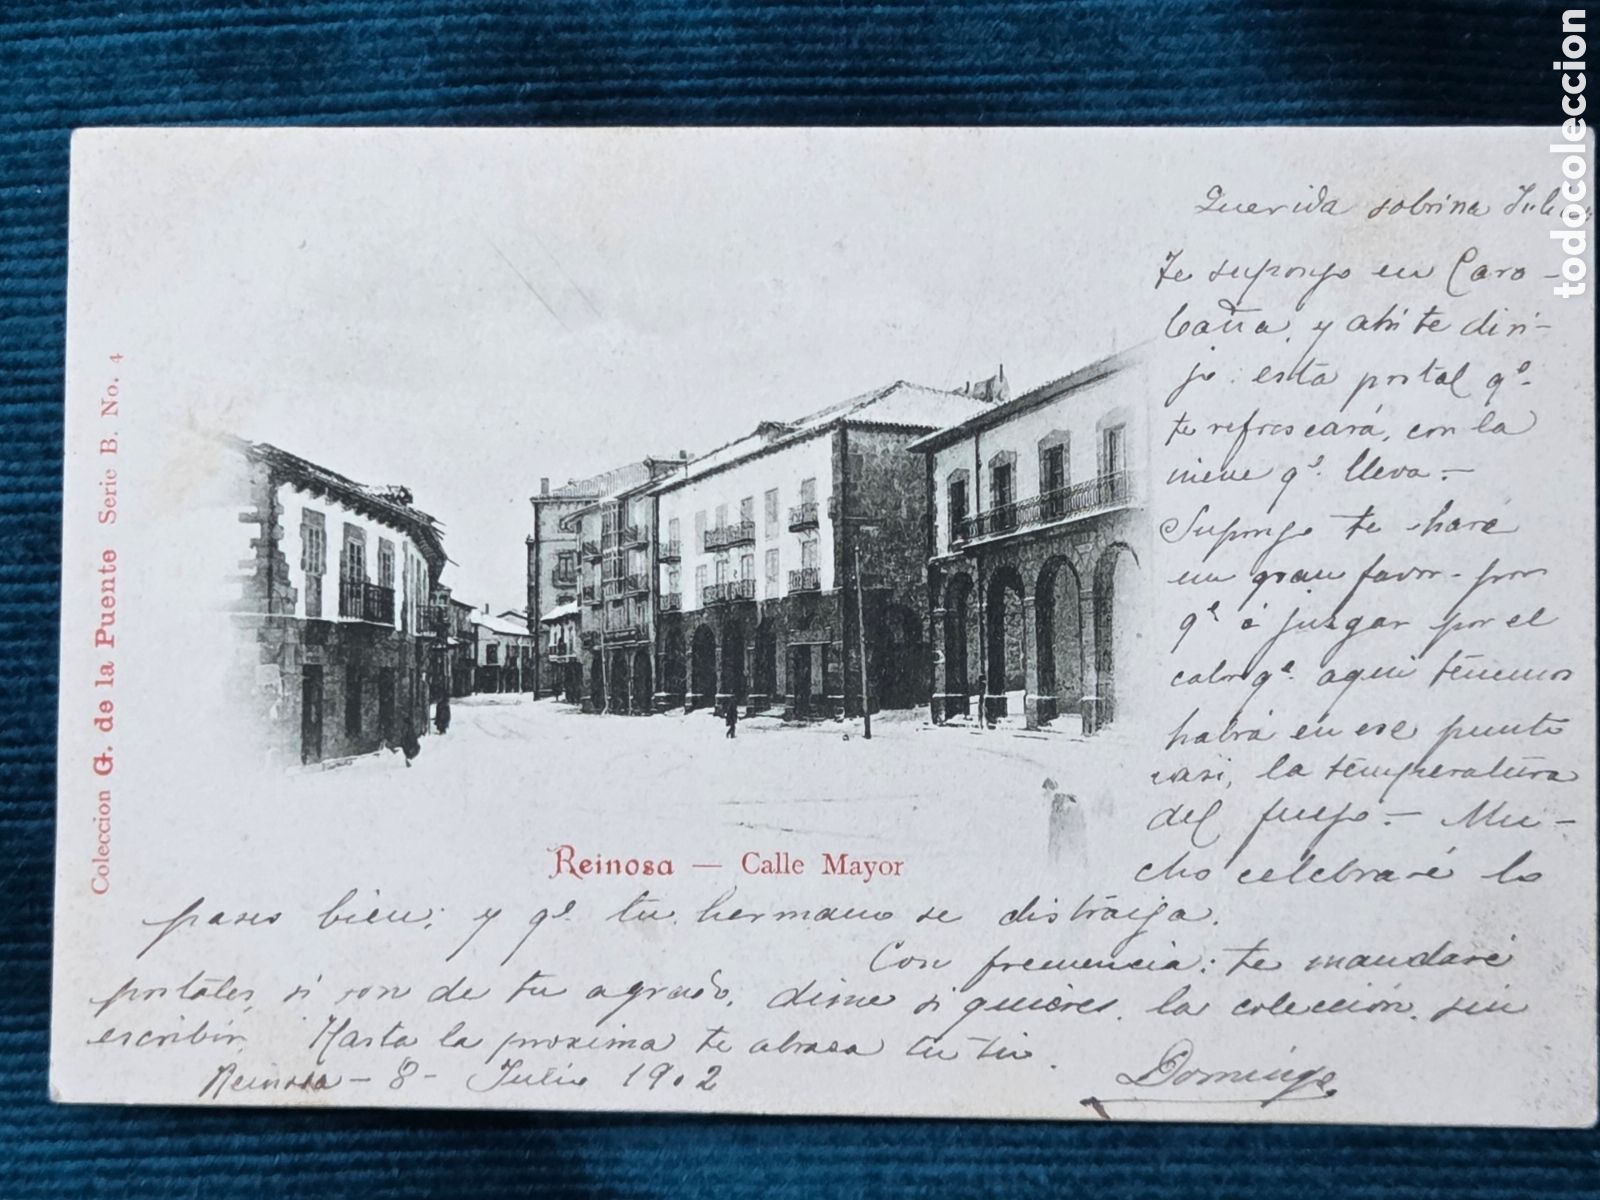 todocoleccion
Coleccion G. de la Puente Serie B. No. 4
Reinosa — Calle Mayor
Querida sobrina
Te supongo en Cara-
baña, y ahi te diri-
jo esta postal qe.
te refrescará, con la
nieve qe. lleva.-
Supongo te haré
un gran favor - por
qe á juzgar por el
calor qe. aqui tenemos
habrá en ese punto
casi, la temperatura
del fuego.- Mu-
cho celebraré lo
pases bien; y qe. tu hermano se distraiga.
Con frecuencia: te mandaré
postales, si son de tu agrado, dime si quieres, la colección, sin
escribir. Hasta la proxima te abraza tu tio.
Reinosa - 8 - Julio 1902
Domingo